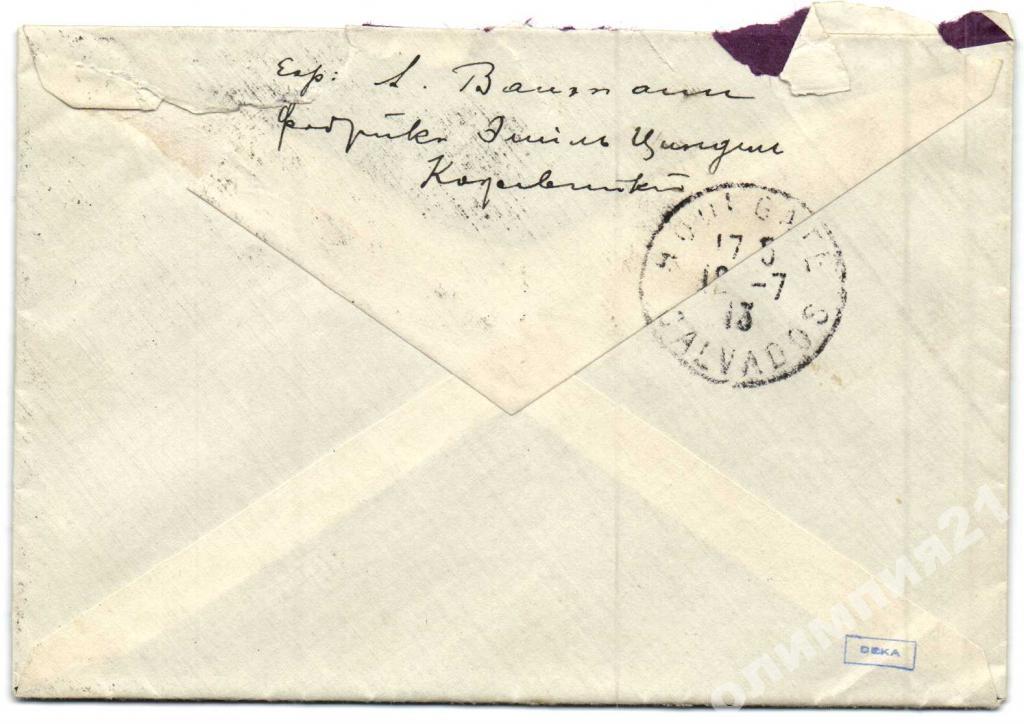 Exp: A. Baumann
фабрика Эмиль Циндель
Кожевники
HOULGATE
17 5
12 -7
13
CALVADOS
DEKA
олимпия21